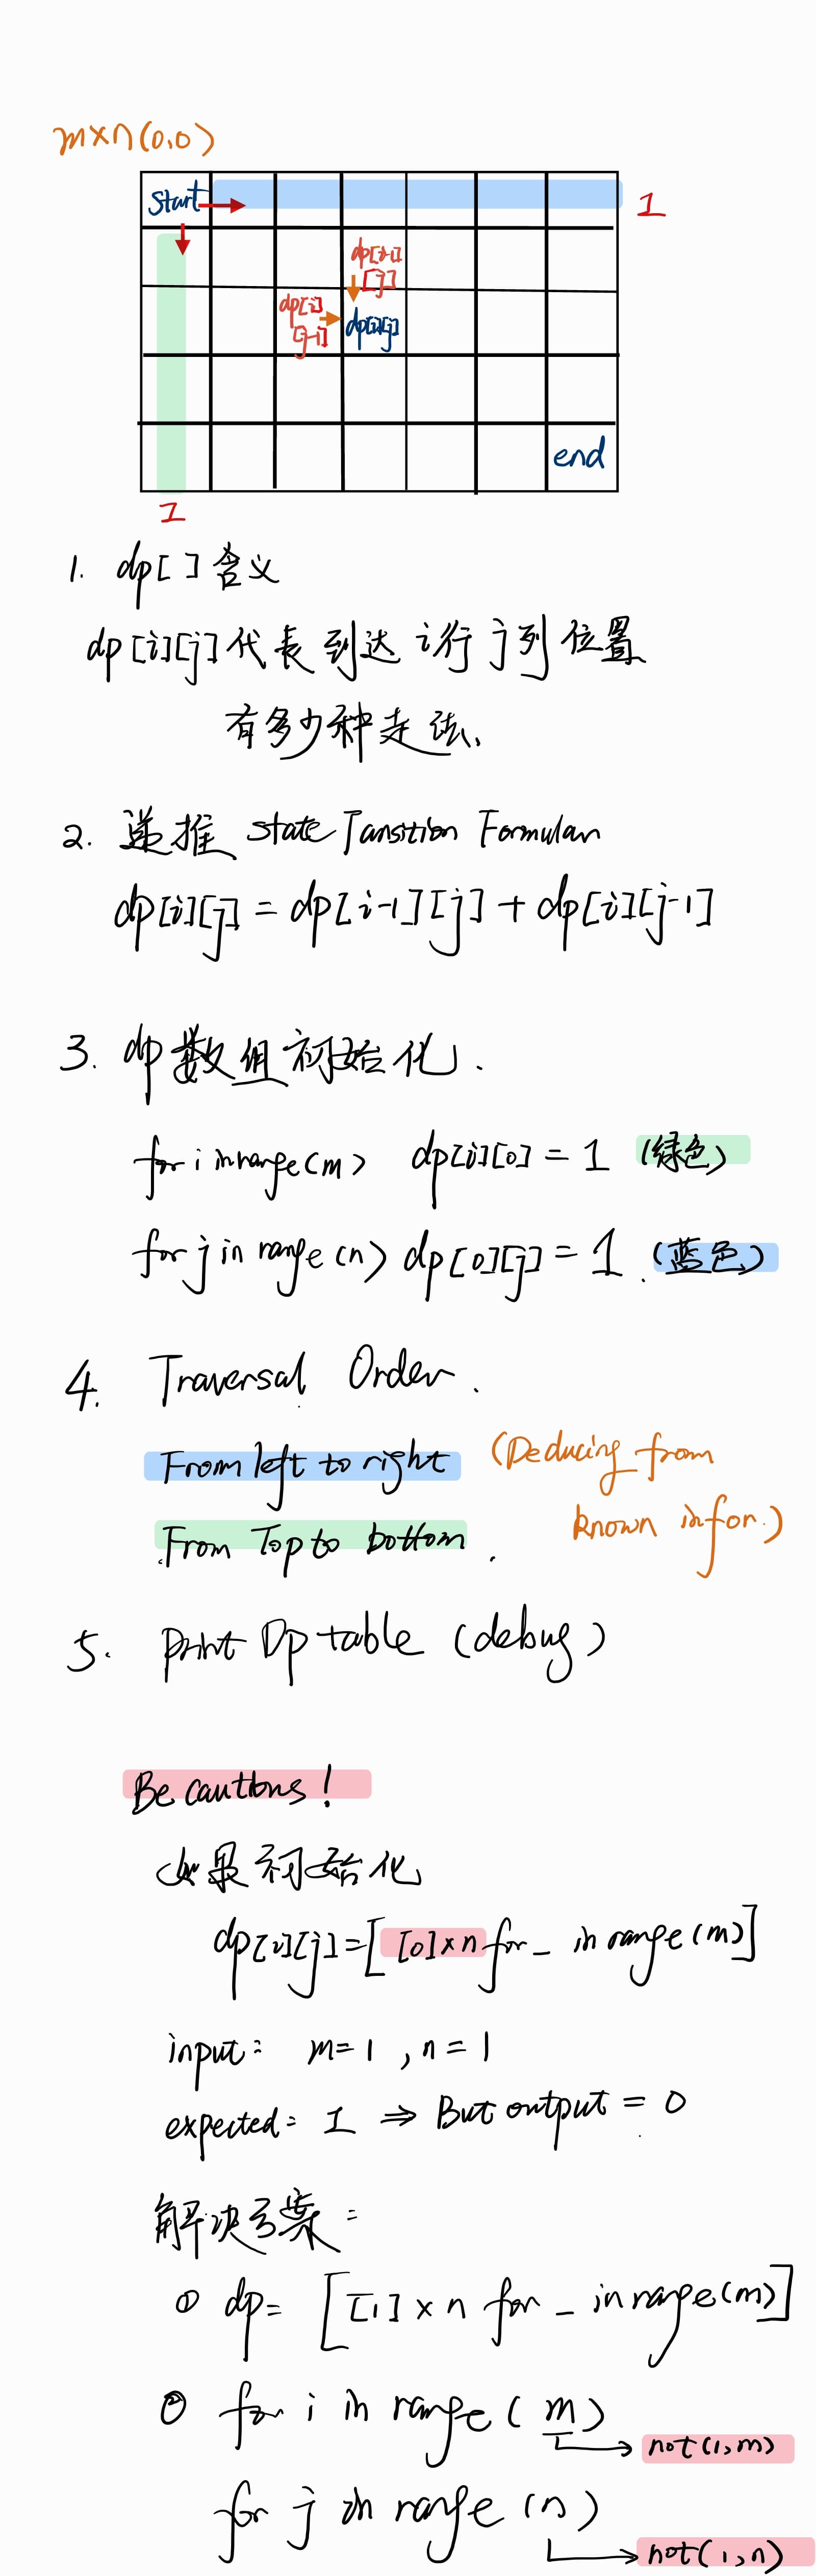 m×n(0,0)
start
1
dp[i-1]
[j]
dp[i]
[j-1]
dp[i][j]
end
1
1. dp[ ] 含义
dp[i][j] 代表到达 i行 j列 位置
有多少种走法、
2. 递推 state Tansition Formulan
dp[i][j] = dp[i-1][j] + dp[i][j-1]
3. dp 数组初始化.
for i in range(m) dp[i][0] = 1 (绿色)
for j in range(n) dp[0][j] = 1. (蓝色)
4. Traversal Order.
From left to right (Deducing from
known infor.)
From Top to bottom.
5. print Dp table (debug)
Be cautions!
如果初始化
dp[i][j]=[[0]×n for _ in range(m)]
input: m=1, n=1
expected: 1 ⇒ But output = 0
解决方案:
① dp= [[1]×n for _ in range(m)]
② for i in range(m)
not(1,m)
for j in range(n)
not(1,n)